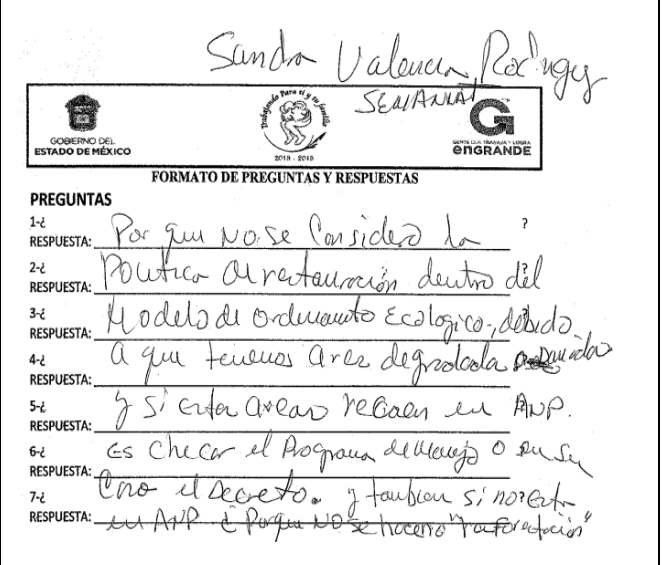 Sandra Valencia Rodriguez
SEMARNAT
Trabajando Para ti y tu familia
GOBIERNO DEL
ESTADO DE MÉXICO
2013 - 2015
GENTE QUE TRABAJA Y LOGRA
enGRANDE
FORMATO DE PREGUNTAS Y RESPUESTAS
PREGUNTAS
1-¿ ?
RESPUESTA: Por que NO se Consideró la
2-¿
RESPUESTA: Política de restauración dentro del
3-¿
RESPUESTA: Modelo de Ordenamiento Ecológico, debido
4-¿
RESPUESTA: a que tenemos area degradada
5-¿
RESPUESTA: y si estas areas recaen en ANP.
6-¿
RESPUESTA: es checar el Programa de Manejo o en su
7-¿
RESPUESTA: Caso el Decreto. y tambien si no esta
en ANP ¿ Porque NO se hacerlo "reforestación"